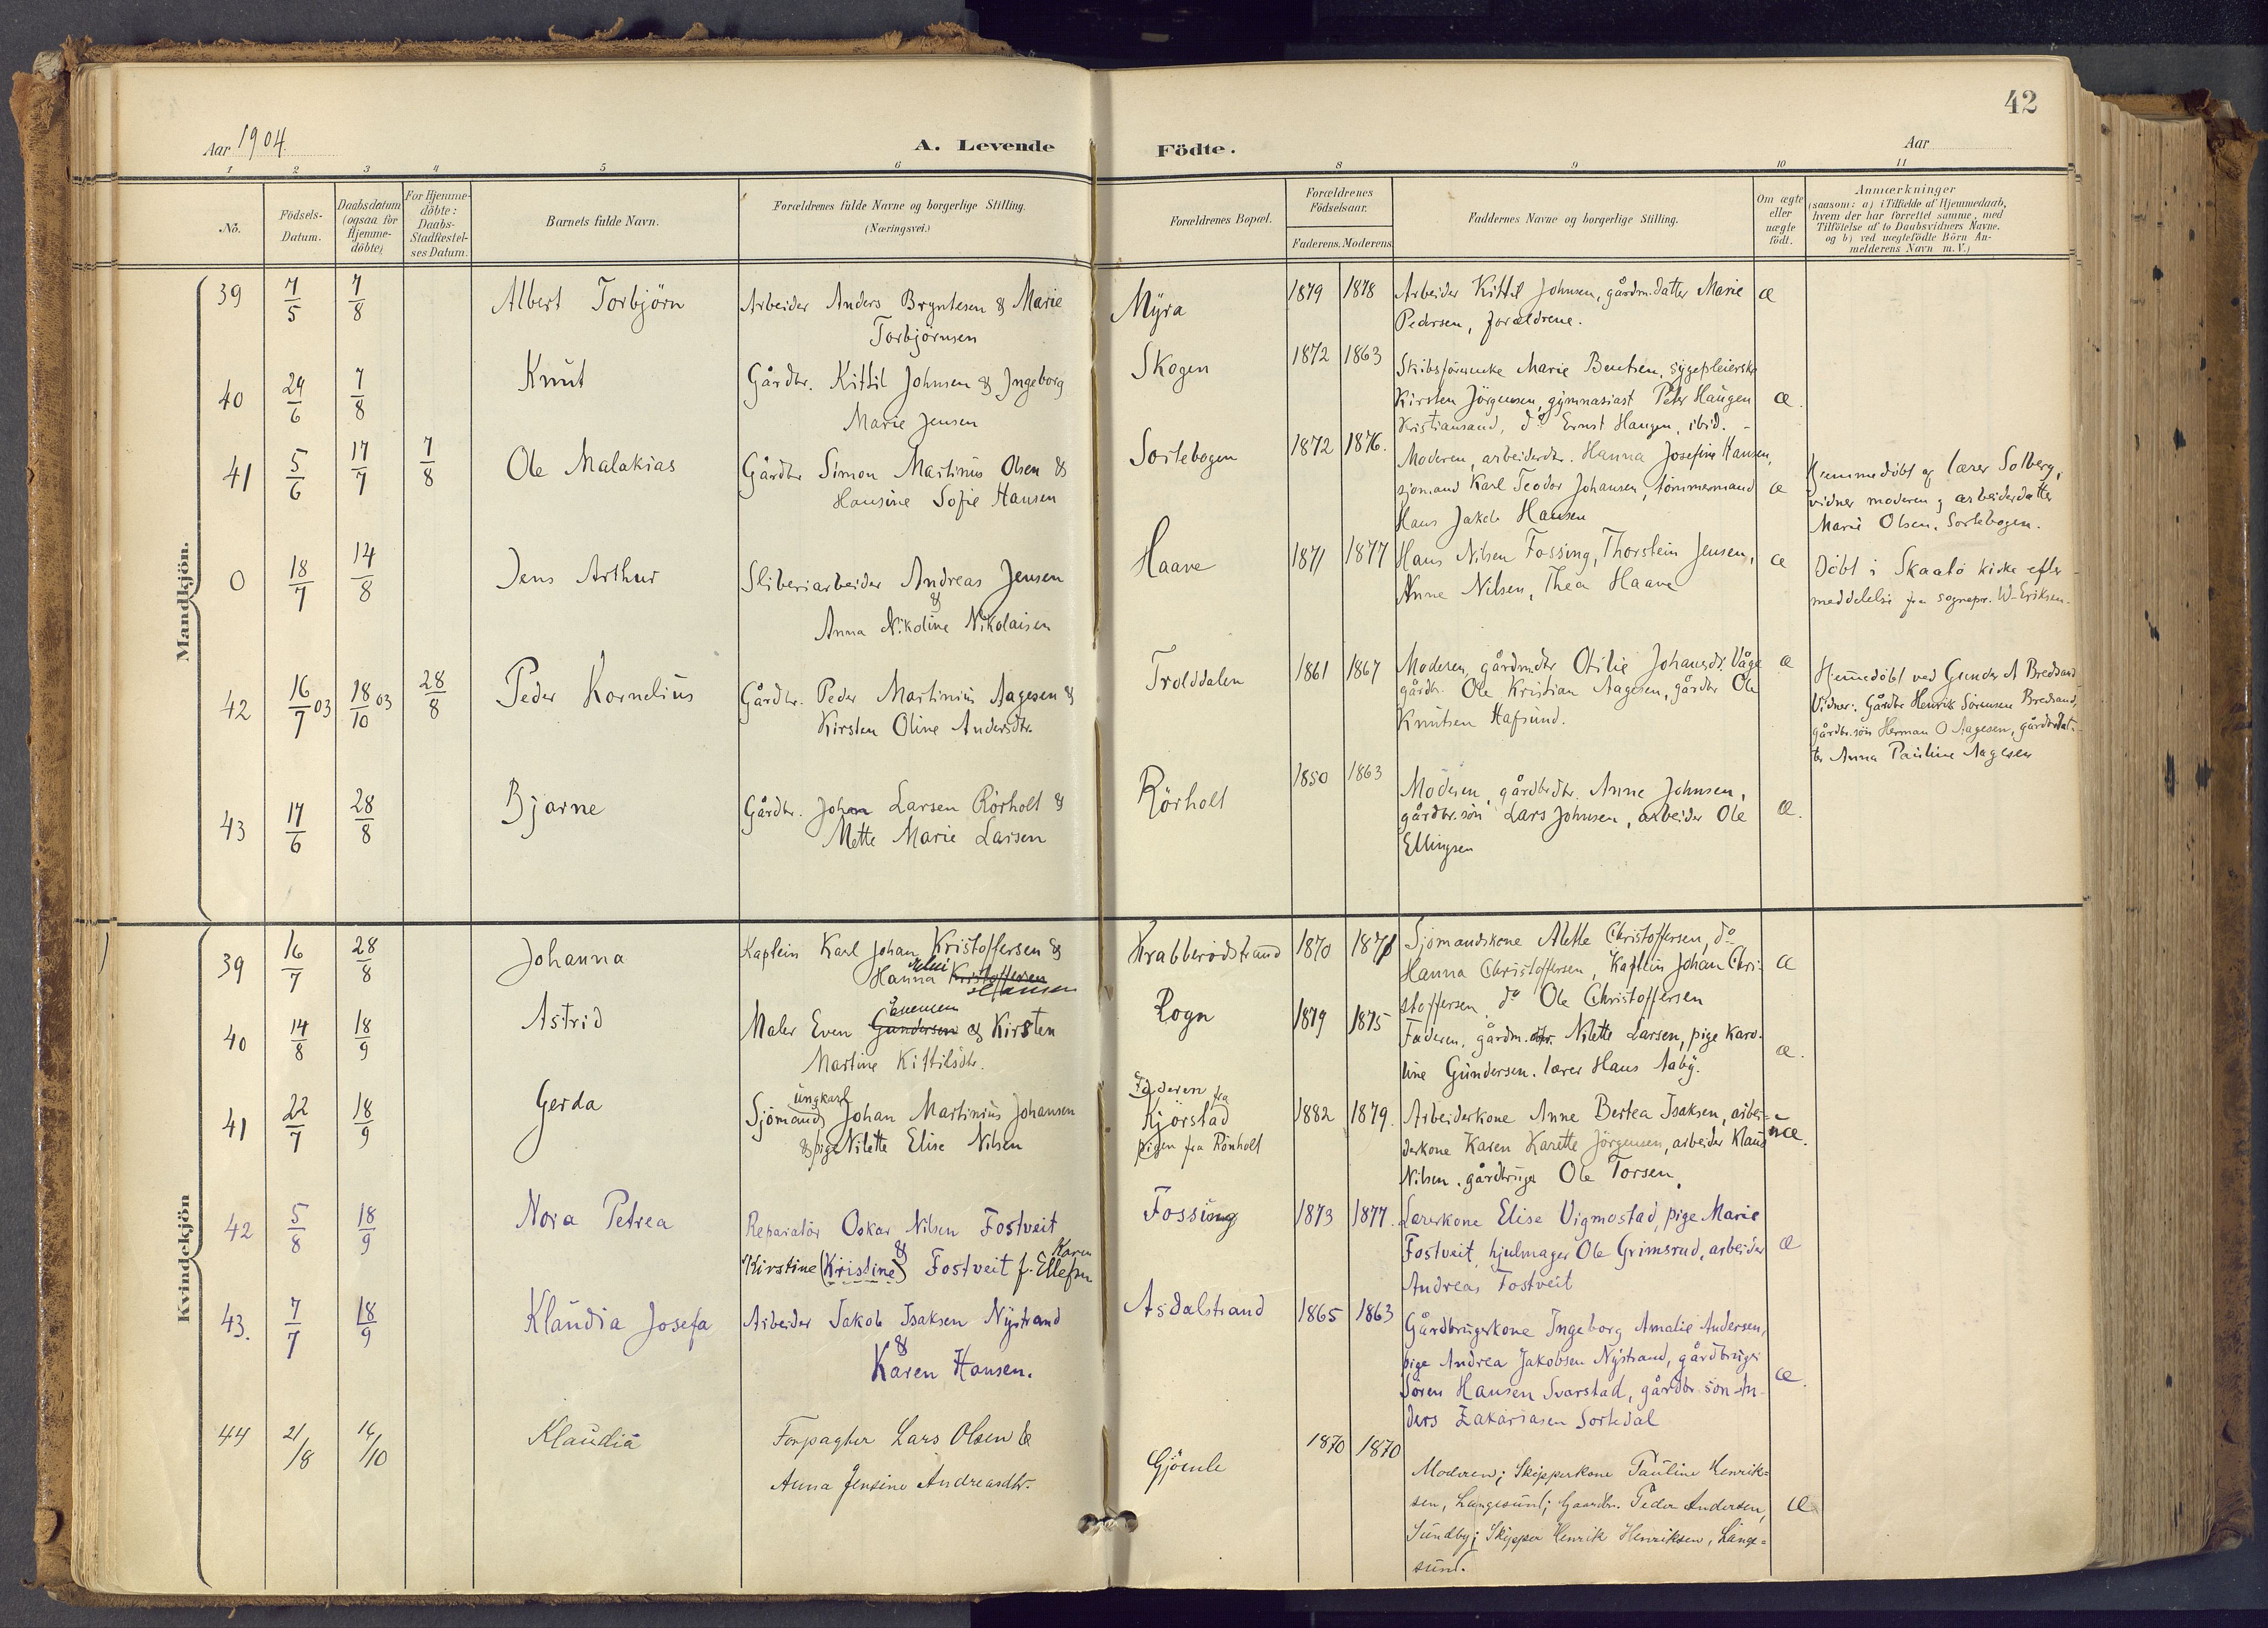 42
Aar 1904
A. Levende Födte.
Aar
1 2 3 4 5 6 8 9 10 11
No.
Födsels-Datum.
Daabsdatum (ogsaa for Hjemme-döbte).
For Hjemme-döbte: Daabs-Stadfæstel-ses Datum.
Barnets fulde Navn.
Forældrenes fulde Navne og borgerlige Stilling. (Næringsvei.)
Forældrenes Bopæl.
Forældrenes Födselsaar.
Faderens. Moderens
Faddernes Navne og borgerlige Stilling.
Om ægte eller uægte födt.
Anmærkninger
(saasom: a) i Tilfælde af Hjemmedaab,
hvem der har forrettet samme, med
Tilföielse af to Daabsvidners Navne.
og b) ved uægtefödte Börn An-
melderens Navn m. V.)
Mandkjön.
39 7/5 7/8 Albert Torbjörn
Arbeider Anders Bryntesen & Marie
Torbjörnsen
Myra 1879 1878
Arbeider Kittil Johnsen, gårdm.datter Marie
Pedersen, forældrene.
æ
40 29/6 7/8 Knut
Gårdbr. Kittil Johnsen & Ingeborg
Marie Jensen
Skogen 1872 1863
Skibsförerenke Marie Bentsen, sygepleierske
Kirsten Jörgensen, gymnasiast Peter Haugen
Kristiansand, do Ernst Haugen, ibid.
æ.
41 5/6 17/7 7/8 Ole Malakias
Gårdbr Simon Martinius Olsen &
Hansine Sofie Hansen
Sortebogen 1872 1876.
Moderen, arbeiderdtr. Hanna Josefine Hansen,
sjömand Karl Teodor Johansen, tömmermand
Hans Jakob Hansen
æ
Hjemmedöbt af lærer Solberg,
vidner moderen & arbeiderdatter
Marie Olsen, Sortebogen.
0 18/7 14/8 Jens Arthur
Sliberiarbeider Andreas Jensen
&
Anna Nikoline Nikolaisen
Haave 1871 1877
Hans Nilsen Fossing, Thorstein Jensen,
Anne Nilsen, Thea Haave
æ
Döbt i Skaatö kirke efter
meddelelse fra sognepr. W. Eriksen.
42 16/7 03 18/10 03 28/8 Peder Kornelius
Gårdbr. Peder Martinius Aagesen &
Kirsten Oline Andersdtr.
Trolddalen 1861 1867
Moderen, gårdmdtr Otilie Johansdtr Våge
gårdbr. Ole Kristian Aagesen, gårdbr Ole
Knutsen Hafsund.
æ
Hjemmedöbt ved Gunder A Bredsand
Vidner: Gårdbr Henrik Sörensen Bredsand,
gårdbr.sön Herman O Aagesen, gårdbrdat-
ter Anna Pauline Aagesen
43 17/6 28/8 Bjarne
Gårdbr. John Larsen Rörholt &
Mette Marie Larsen
Rörholt 1850 1863
Moderen, gårdbrdtr. Anne Johnsen,
gårdbr.sön Lars Johnsen, arbeider Ole
Ellingsen
æ.
Kvindekjön
39 16/7 28/8 Johanna
Kaptein Karl Johan Kristoffersen &
Hanna Kristoffersen
Hansen
Krabberödstrand 1870 1871
Sjömandskone Alette Christoffersen, do
Hanna Christoffersen, Kaptein Johan Chri-
stoffersen, do Ole Christoffersen
æ
40 14/8 18/9 Astrid
Evensen
Maler Even Gundersen & Kirsten
Martine Kittilsdtr.
Rogn 1879 1875
Faderen, gårdm.dtr. Nilette Larsen, pige Karo-
line Gundersen, lærer Hans Aaby.
æ.
41 22/7 18/9 Gerda
ungkarl
Sjömand Johan Martinius Johansen
& pige Nilette Elise Nilsen
Faderen fra
Kjörstad
pigen fra Rönholt
1882 1879.
Arbeiderkone Anne Bertea Isaksen, arbei-
derkone Karen Karette Jörgensen, arbeider Klaus
Nilsen, gårdbruger Ole Torsen.
uæ.
42 5/8 18/9 Nora Petrea
Reparatör Oskar Nilsen Fostveit
& Karen
Kirstine (Kristine) Fostveit f. Ellefsen
Fossing 1873 1877.
Lærerkone Elise Vigmostad, pige Marie
Fostveit, hjulmager Ole Grimsrud, arbeider
Andreas Fostveit
æ
43. 7/7 18/9 Klaudia Josefa
Arbeider Jakob Isaksen Nystrand
&
Karen Hansen.
Asdalstrand 1865 1863
Gårdbrugerkone Ingeborg Amalie Andersen,
pige Andrea Jakobsen Nystrand, gårdbruger
Sören Hansen Svarstad, gårdbr. sön An-
ders Zakariasen Sortedal
æ.
44 21/8 16/10 Klaudia
Forpagter Lars Olsen &
Anna Jensine Andreasdtr.
Gjömle 1870 1870
Moderen; Skipperkone Pauline Henrik-
sen, Langesund; Gaardbr. Peder Andersen,
Sundby; Skipper Henrik Henriksen, Lange-
sund.
æ